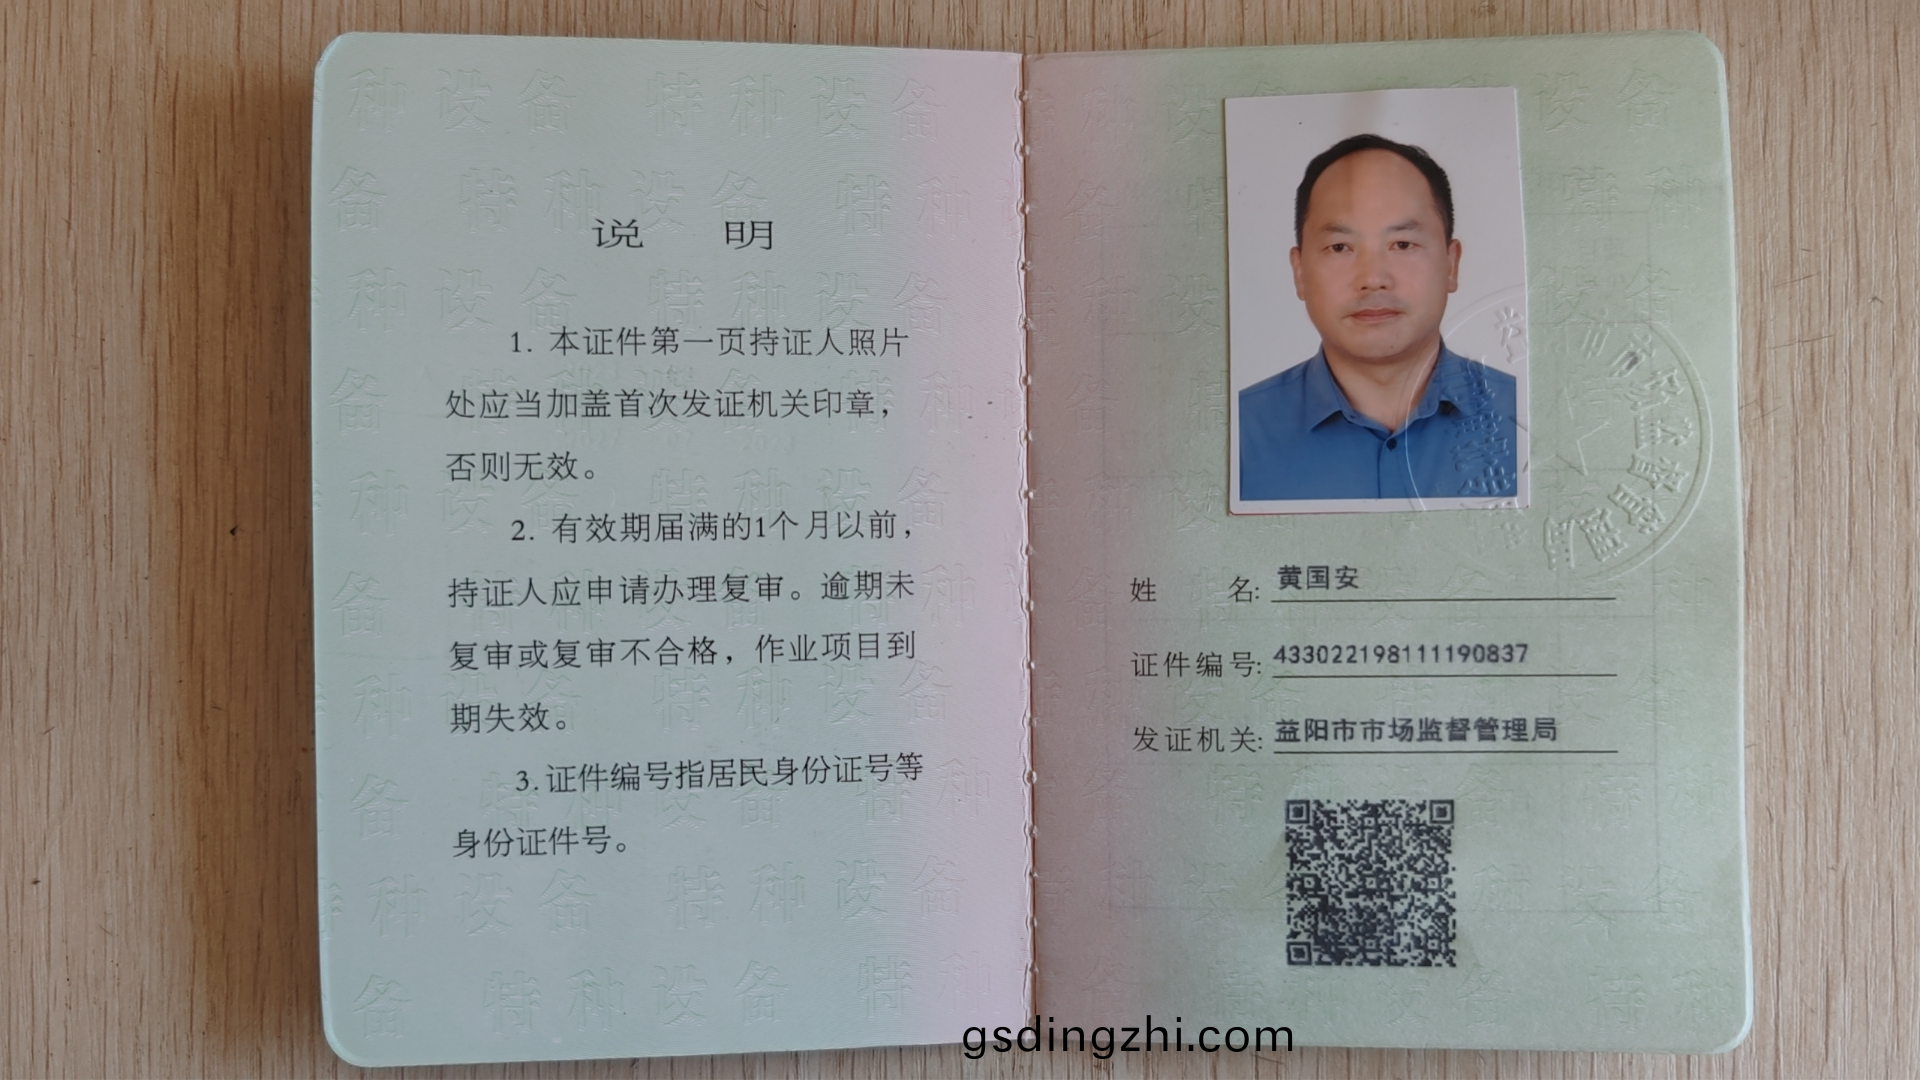 说 明
1. 本证件第一页持证人照片
处应当加盖首次发证机关印章，
否则无效。
2. 有效期届满的1个月以前，
持证人应申请办理复审。逾期未
复审或复审不合格，作业项目到
期失效。
3.证件编号指居民身份证号等
身份证件号。
姓 名: 黄国安
证件编号: 433022198111190837
发证机关: 益阳市市场监督管理局
gsdingzhi.com